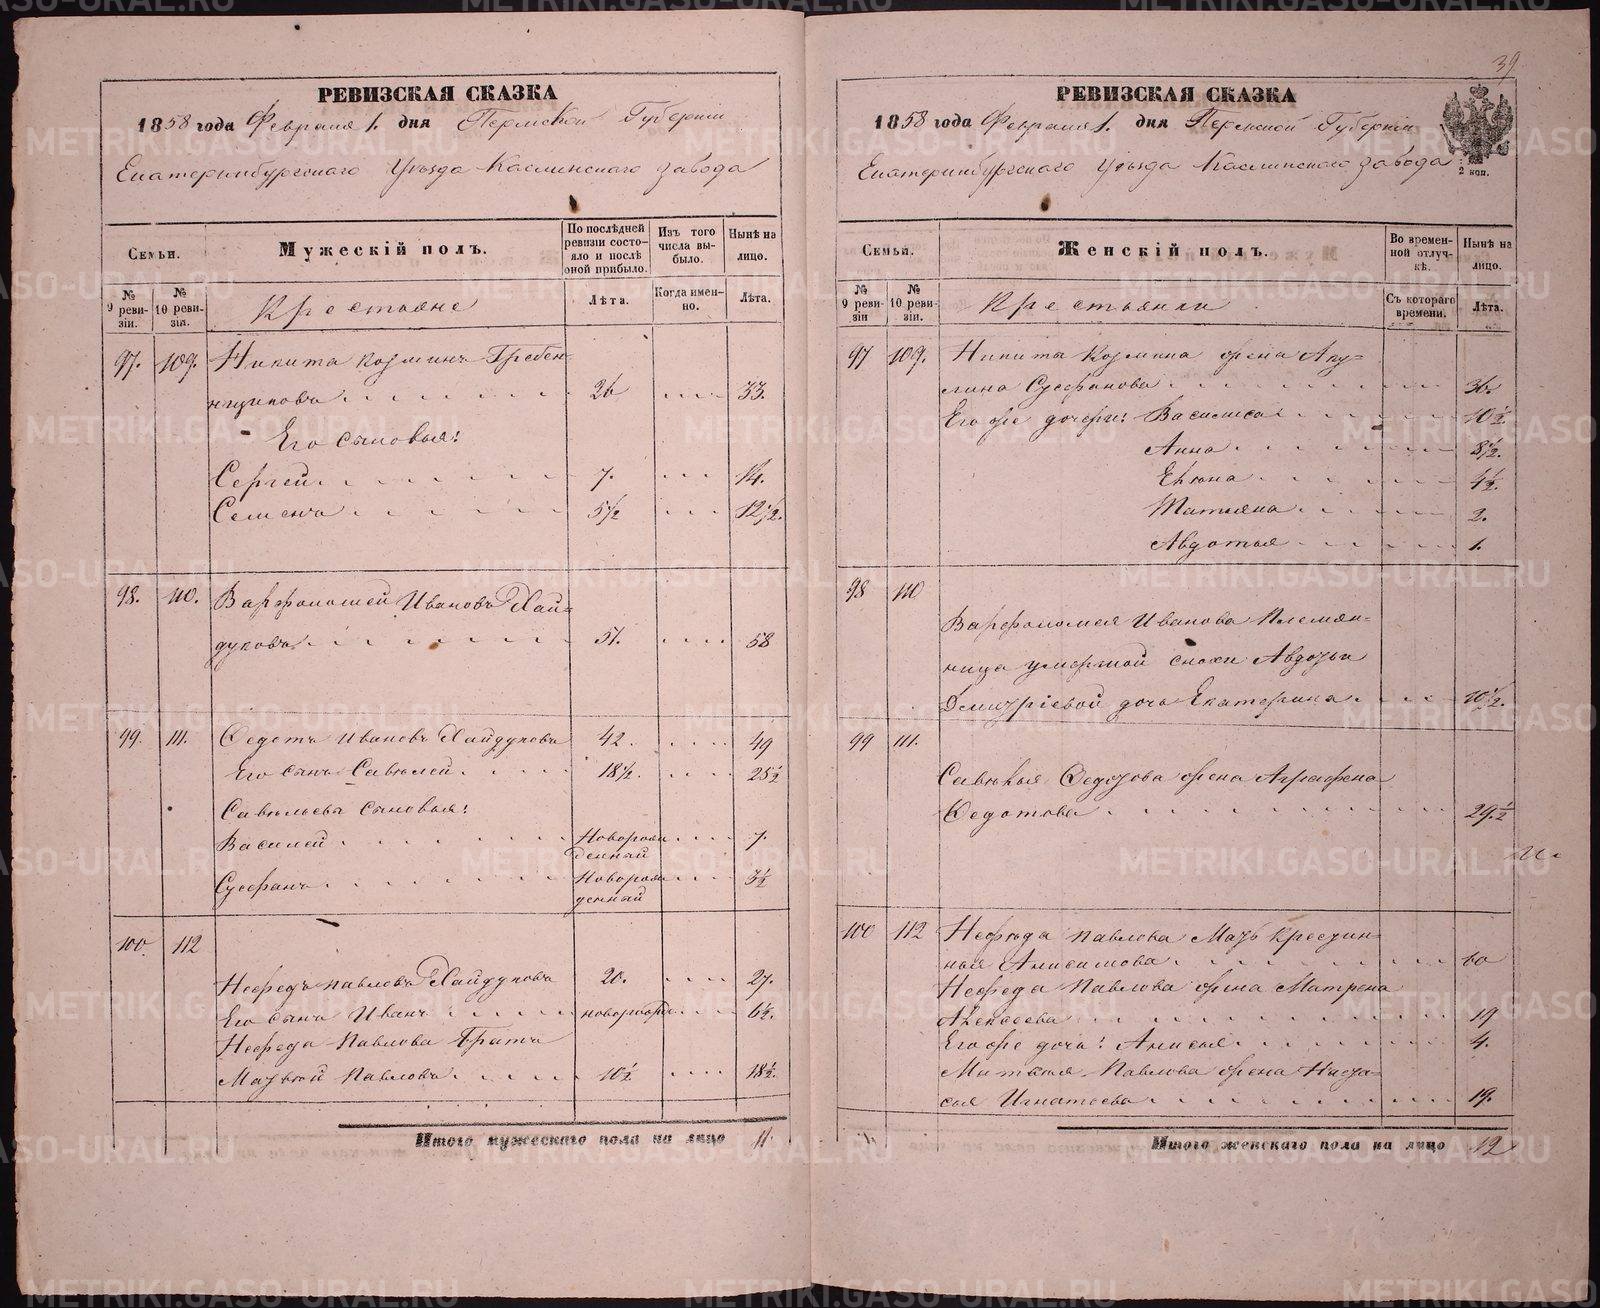 39
РЕВИЗСКАЯ СКАЗКА
1858 года Февраля 1. дня Пермской Губернiи
Екатеринбургскаго Уѣзда Каслинскаго завода
Семьи.
Мужескiй полъ.
По послѣдней ревизiи состояло и послѣ оной прибыло.
Изъ того числа выбыло.
Нынѣ на лицо.
№ 9 ревизiи.
№ 10 ревизiи.
Крестьяне
Лѣта.
Когда именно.
Лѣта.
97. 109. Никита Козминъ Гребен-
нщиковъ 26 33.
Его сыновья:
Сергей 7. 14.
Семенъ 5 1/2 12 1/2.
98. 110. Варфоломей Ивановъ Хай-
дуковъ 51. 58
99. 111. Федотъ Ивановъ Хайдуковъ 42. 49
Его сынъ Савѣлей 18 1/2 25 1/2
Савѣльева сыновья:
Василей Новорож 7.
денный
Суфанъ Новорож 3 1/2
денный
100. 112
Нефедъ Павловъ Хайдуковъ 20. 27.
Его сынъ Иванъ новорожд 6 1/2.
Нефеда Павлова Братъ
Матвѣй Павловъ 10 1/2 18 1/2.
Итого мужескаго пола на лицо 11.
РЕВИЗСКАЯ СКАЗКА
1858 года Февраля 1. дня Пермской Губернiи
Екатеринбургскаго Уѣзда Каслинскаго завода
2 коп.
Семьи.
Женскiй полъ.
Во временной отлучкѣ.
Нынѣ на лицо.
№ 9 ревизiи
№ 10 ревизiи.
Крестьянки
Съ котораго времени.
Лѣта.
97 109. Никита Козмина жена Аку-
лина Суфанова 36.
Его же дочери: Василиса 10 1/2
Анна 8 1/2.
Татьяна 2.
Авдотья 1.
4 1/2
98 110
Варфоломея Иванова Племян-
ница умершой снохи Авдотьи
Дмитрiевой дочь Екатерина 10 1/2.
99 111.
Савѣлья Федотова жена Аграфена
Федотова 29 1/2
100 112 Нефеда Павлова Мать Крестин-
нья Анисимова 60
Нефеда Павлова жена Матрена
Алексеева 19
Его же дочь: Анисья 4.
Митвѣя Павлова жена Наста-
сья Игнатьева 19.
Итого женскаго пола на лицо 12
METRIKI.GASO-URAL.RU